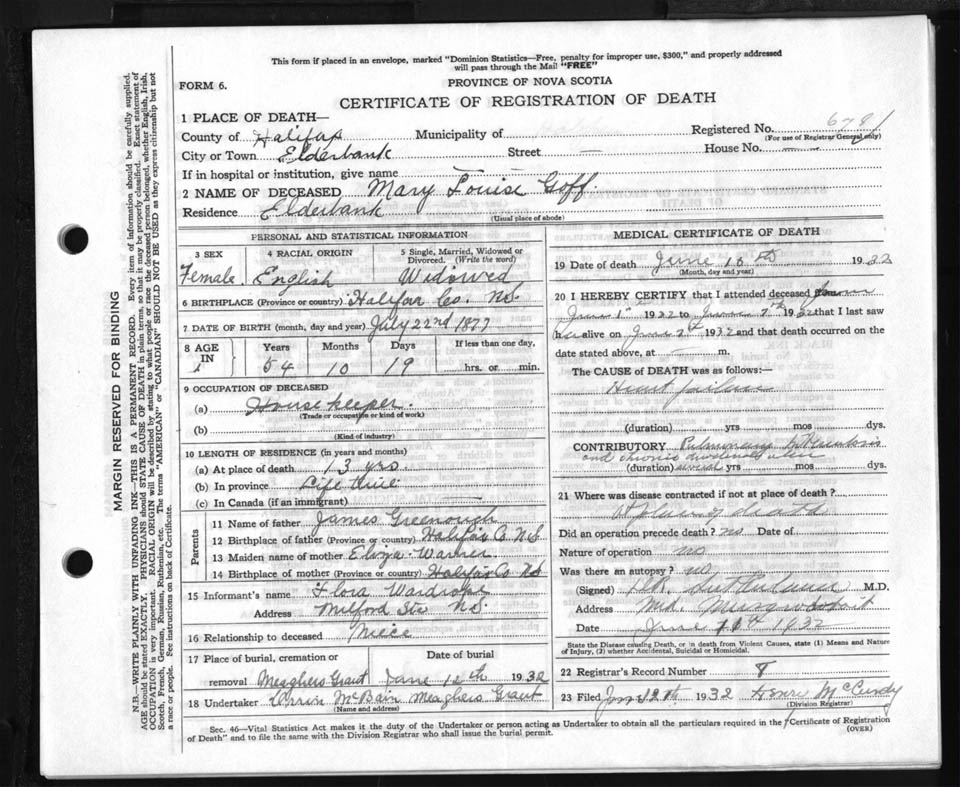 This form if placed in an envelope, marked "Dominion Statistics—Free, penalty for improper use, $300," and properly addressed
will pass through the Mail "FREE"
FORM 6.
PROVINCE OF NOVA SCOTIA
CERTIFICATE OF REGISTRATION OF DEATH
1 PLACE OF DEATH—
County of Halifax Municipality of Registered No. 6781
(For use of Registrar General only)
City or Town Elderbank Street — House No. —
If in hospital or institution, give name
2 NAME OF DECEASED Mary Louise Goff.
Residence Elderbank
(Usual place of abode)
PERSONAL AND STATISTICAL INFORMATION
3 SEX 4 RACIAL ORIGIN 5 Single, Married, Widowed or Divorced. (Write the word)
Female. English Widowed
6 BIRTHPLACE (Province or country) Halifax Co. N.S.
7 DATE OF BIRTH (month, day and year) July 22nd 1877
8 AGE IN Years Months Days If less than one day,
54 10 19 hrs. or min.
9 OCCUPATION OF DECEASED
(a) Housekeeper.
(Trade or occupation or kind of work)
(b)
(Kind of industry)
10 LENGTH OF RESIDENCE (in years and months)
(a) At place of death 13 yrs
(b) In province Life time
(c) In Canada (if an immigrant) —
Parents
11 Name of father James Greenough
12 Birthplace of father (Province or country) Halifax Co. N.S
13 Maiden name of mother Eliza Warner
14 Birthplace of mother (Province or country) Halifax Co N.S
15 Informant's name Flora Wardrope
Address Milford Stn N.S.
16 Relationship to deceased Niece
17 Place of burial, cremation or removal Date of burial
Meaghers Grant June 12th 1932
18 Undertaker Orrin McBain Meaghers Grant
(Name and address)
MEDICAL CERTIFICATE OF DEATH
19 Date of death June 10th 1932
(Month, day and year)
20 I HEREBY CERTIFY that I attended deceased from
June 1st 1932 to June 7th 1932 that I last saw
her alive on June 7th 1932 and that death occurred on
date stated above, at — m.
The CAUSE OF DEATH was as follows:—
Heart failure
(duration) yrs mos dys.
CONTRIBUTORY Pulmonary tuberculosis
and chronic duodenal ulcer
(duration) several yrs mos dys.
21 Where was disease contracted if not at place of death?
at place of death
Did an operation precede death? no Date of
Nature of operation no
Was there an autopsy? no
(Signed) M.D.
Address Mid. Musquodoboit
Date June 11th 1932
State the Disease causing Death, or in death from Violent Causes, state (1) Means and Nature
of Injury, (2) whether Accidental, Suicidal or Homicidal.
22 Registrar's Record Number 8
23 Filed June 12th 1932 Henri McCurdy
(Division Registrar)
Sec. 46—Vital Statistics Act makes it the duty of the Undertaker or person acting as Undertaker to obtain all the particulars required in the Certificate of Registration
of Death" and to file the same with the Division Registrar who shall issue the burial permit.
(OVER)
MARGIN RESERVED FOR BINDING
N.B.—WRITE PLAINLY WITH UNFADING INK—THIS IS A PERMANENT RECORD. Every item of information should be carefully supplied.
AGE should be stated EXACTLY. PHYSICIANS should STATE CAUSE OF DEATH in plain terms, so that it may be properly classified. Exact statement of
OCCUPATION is very important. RACIAL ORIGIN will be described by stating to what people or race the deceased person belonged, whether English, Irish,
Scotch, French, German, Russian, Ruthenian, etc. The terms "AMERICAN" or "CANADIAN" SHOULD NOT BE USED as they express citizenship but not
a race or people. See instructions on back of Certificate.